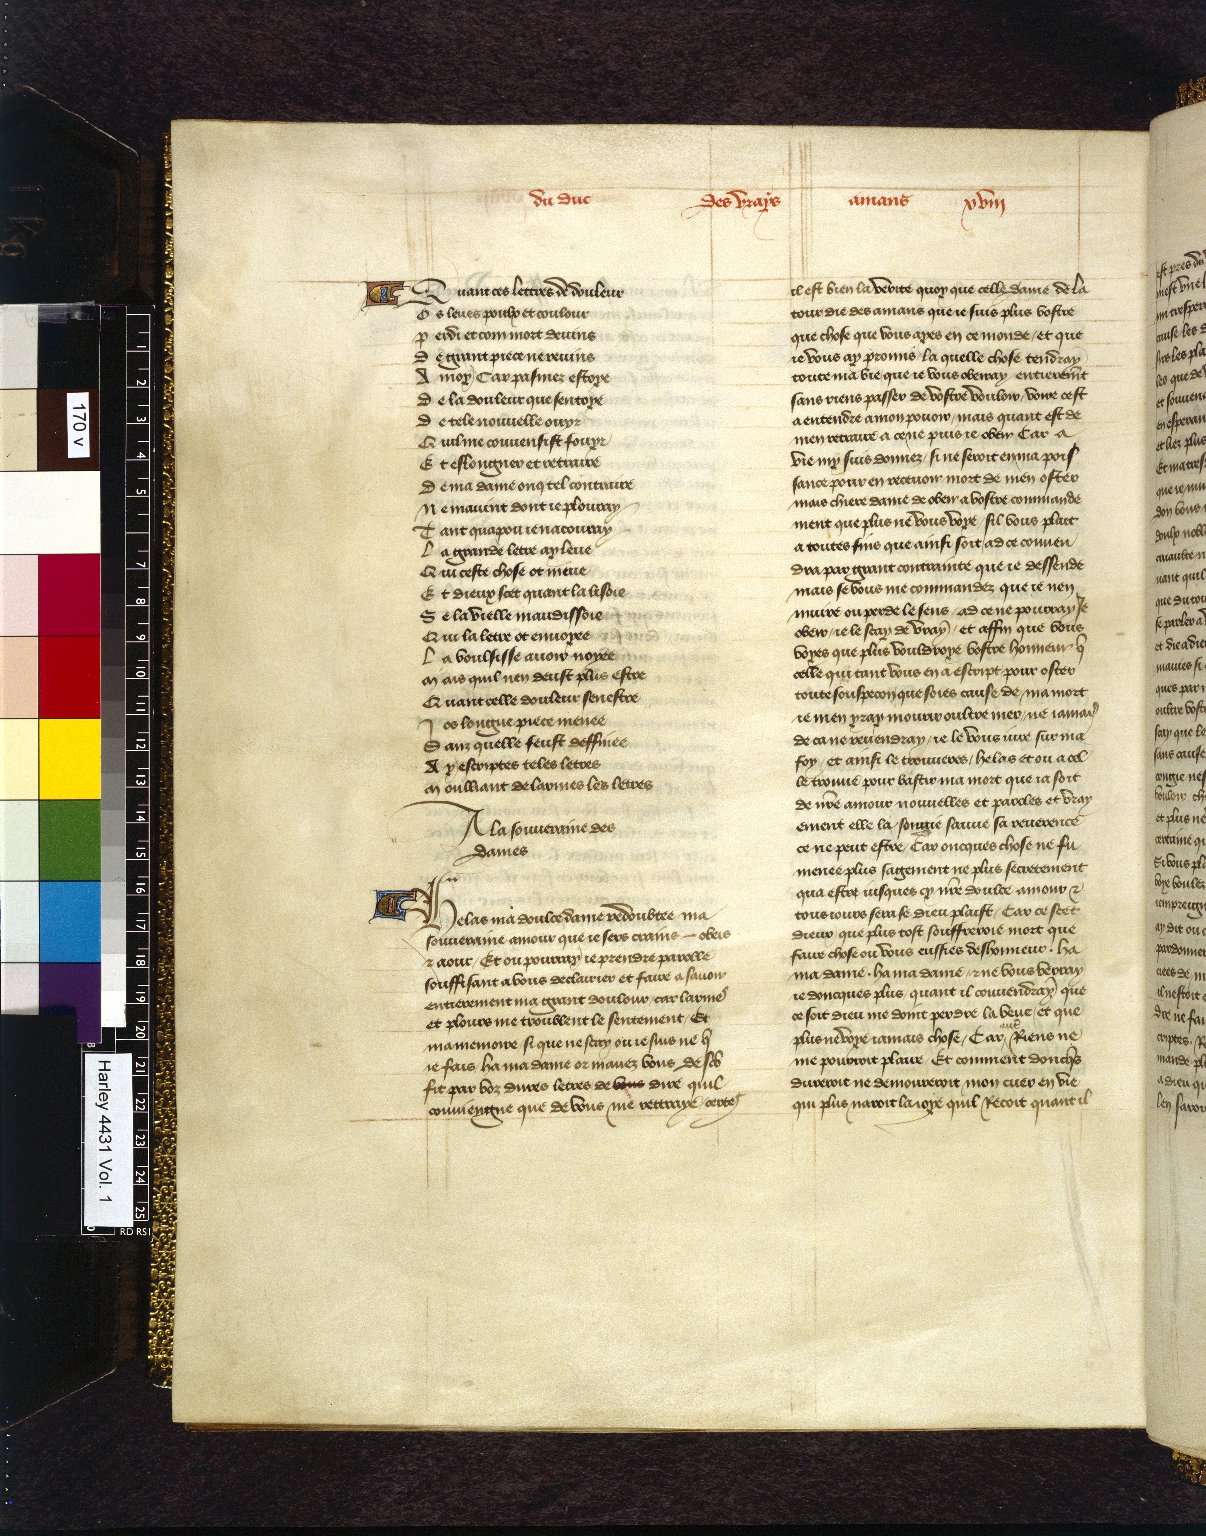 du duc des vrays amans xviii
Quant ces lettres de douleur
Os leues poulx et coulour
perdi et com mort deuins
De grant piece ne reuins
A moy Car pasmez estoye
De la douleur que sentoye
De tele nouuelle ouyr
Quil me couuensist fouyr
Et eslongner et retraire
De ma dame onq tel contraire
Ne mauint dont ie plouray
Tant quapou ie nacouray
La grande letre ay leue
Qui ceste chose ot meue
Et dieux scet quant la lisoie
Se la vielle maudissoie
Qui la letre ot enuoyee
La voulsisse auoir noyee
Mais quil nen deust plus estre
Quant celle douleur senestre
Jos longue piece menee
Sanz quelle feust deffinee
Ay escriptes teles letres
Moulliant de larmes les letres
A la souueraine des
dames
Helas ma doulce dame redoubtee ma
souueraine amour que ie sers crains obeis
⁊ aour / Et ou pourray ie prendre parolle
souffisant a vous declairier et faire a sauoir
entierement ma grant doulour / car larmes
et plours me troublent le sentement / Et
ma memoire si que ne scay ou ie suis ne q̄
ie fais / ha ma dame or mauez vous de
fit par voz dures letres de vous dire quil
couuiengne que de vous me rettraye / certes
il est bien la verite quoy que celle dame de la
tour die des amans que ie suis plus vostre
que chose que vous ayes en ce monde / et que
ie vous ay promis / la quelle chose tendray
toute ma vie que ie vous obeiray entieremēt
sans riens passer de vostre vouloir / voire cest
a entendre a mon pouoir / mais quant est de
men retraire a ce ne puis ie obeir Car a
vie my suis donnez / si ne seroit en ma poif
sance pour en receuoir mort de men oster
mais chiere dame de obeir a vostre commande
ment que plus ne vous voye / sil vous plaist
a toutes fins que ainsi soit ad ce conuen
dra par grant contrainte que ie dessende
mais se vous me commandez que ie nen
muire ou perde le sens / ad ce ne pourray ie
obeir / ie le scay de vray / et affin que vous
voyes que plus vouldroye vostre honneur q̄
celle qui tant vous en a escript pour oster
toute souspecon que soies cause de ma mort
ie men yray mourir oultre mer / ne iamais
de ca ne reuendray / ie le vous iure sur ma
foy / et ainsi le trouueres / helas et ou a cel
le trouue pour bastir ma mort que ia soit
de nr̄e amour nouuelles et paroles et vray
ement elle la songie sauue sa reuerence
ce ne peut estre / Car oncques chose ne fu
menee plus sagement ne plus secretement
qua estre iusques cy nr̄e doulce amour ⁊
tous iours sera se dieu plaist / Car ce scet
dieux que plus tost souffreroie mort que
faire chose ou vous eussies deshonneur / ha
ma dame / ha ma dame / ⁊ ne vous verray
ie doncques plus / quant il conuendray que
ce soit dieu me doint perdre la veue et que
plus ne voye iamais chose / Car Riens ne
me pourroit plaire / Et comment doncq̄s
dureroit ne demoureroit mon cuer en vie
qui plus naroit la ioye quil Recoit quant il
170 v
Harley 4431 Vol. 1